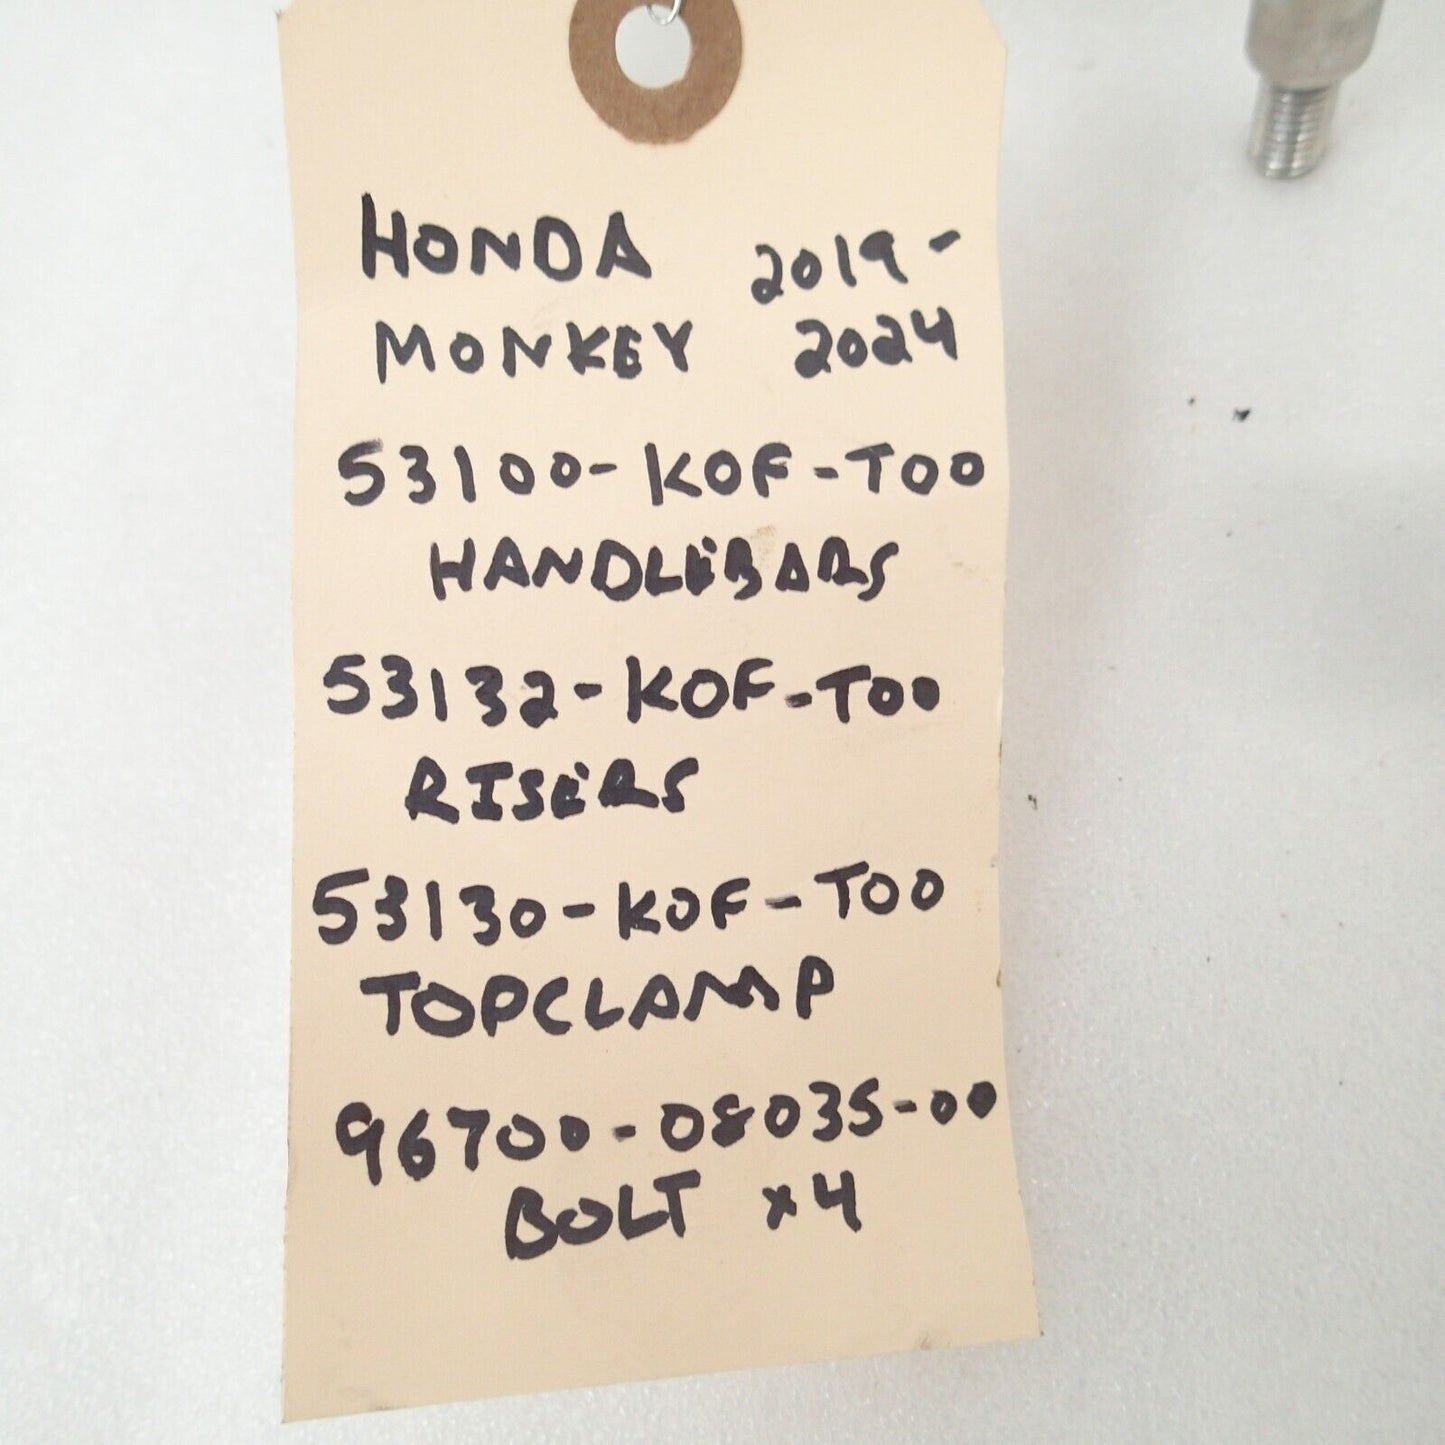 HONDA 2019-
MONKEY 2024
53100-K0F-T00
HANDLEBARS
53132-K0F-T00
RISERS
53130-K0F-T00
TOPCLAMP
96700-08035-00
BOLT x4